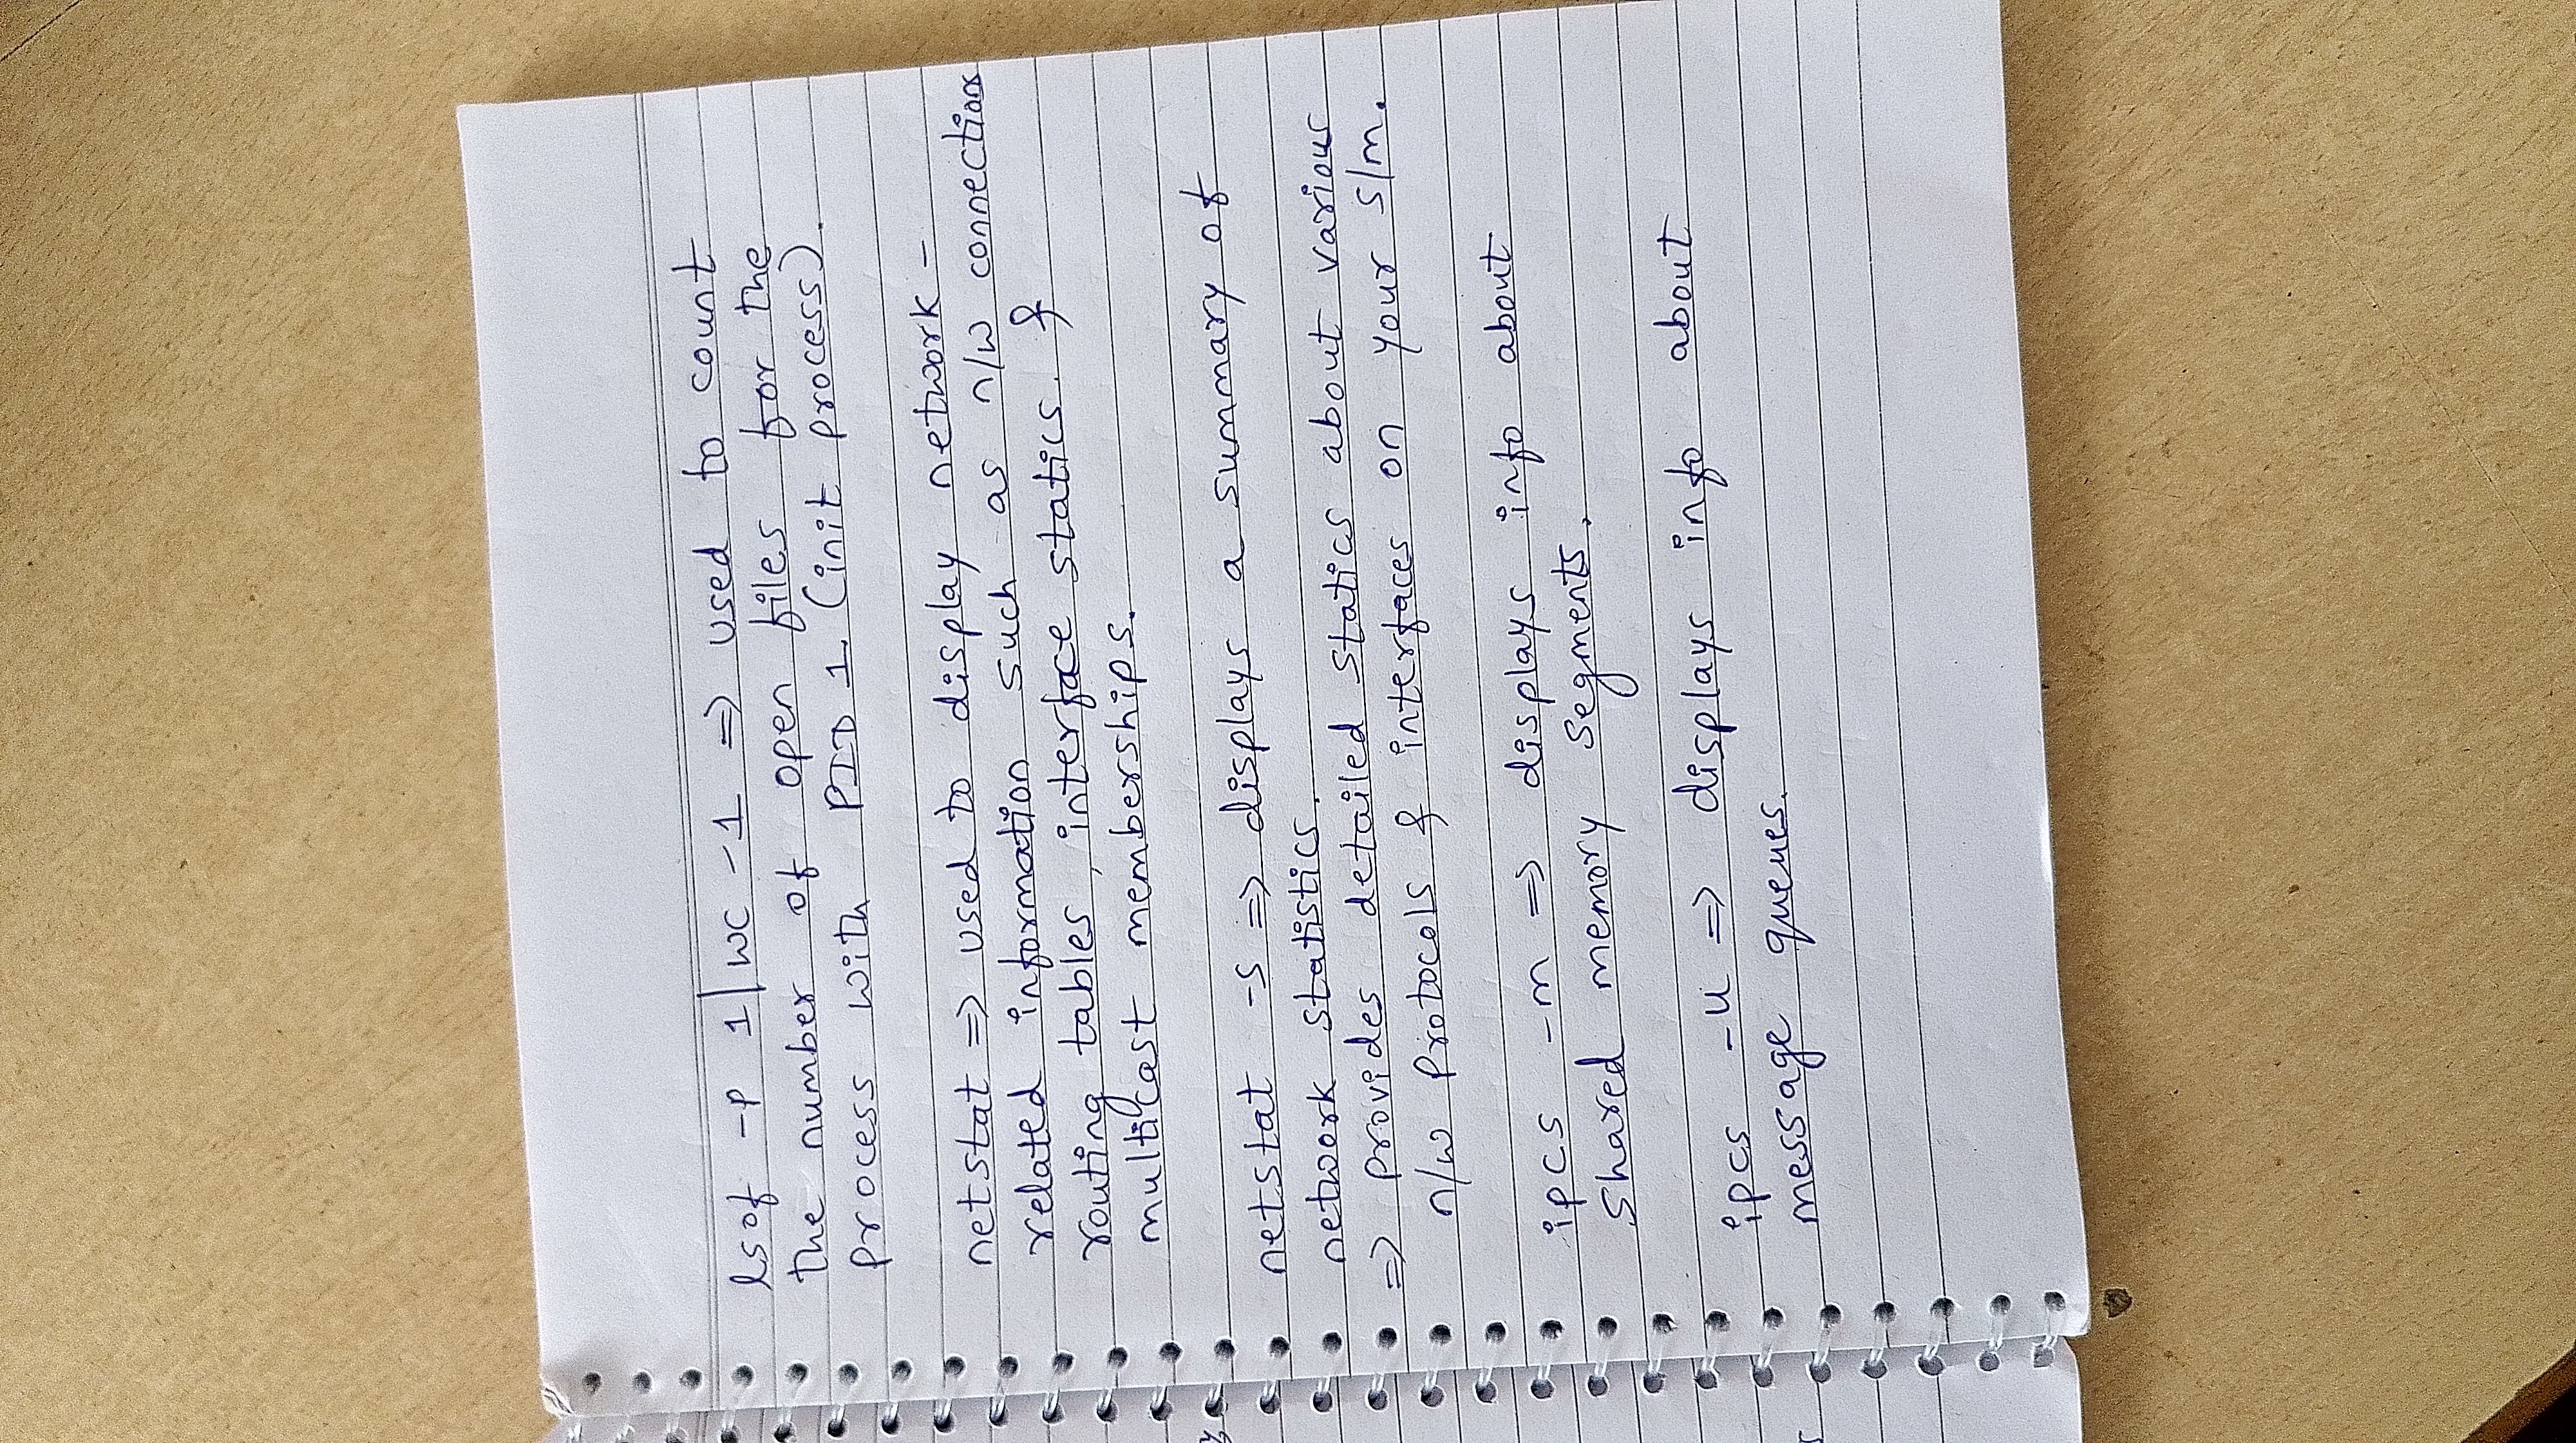 lsof -p 1 | wc -1 => used to count
the number of open files for the
process with PID 1 (init process).
netstat => used to display network-
related information such as n/w connections
routing tables, interface statics. &
multicast memberships.
netstat -s => displays a summary of
network statistics.
=> provides detailed statics about various
n/w protocols & interfaces on your s/m.
ipcs -m => displays info about
shared memory segments.
ipcs -u => displays info about
message queues.